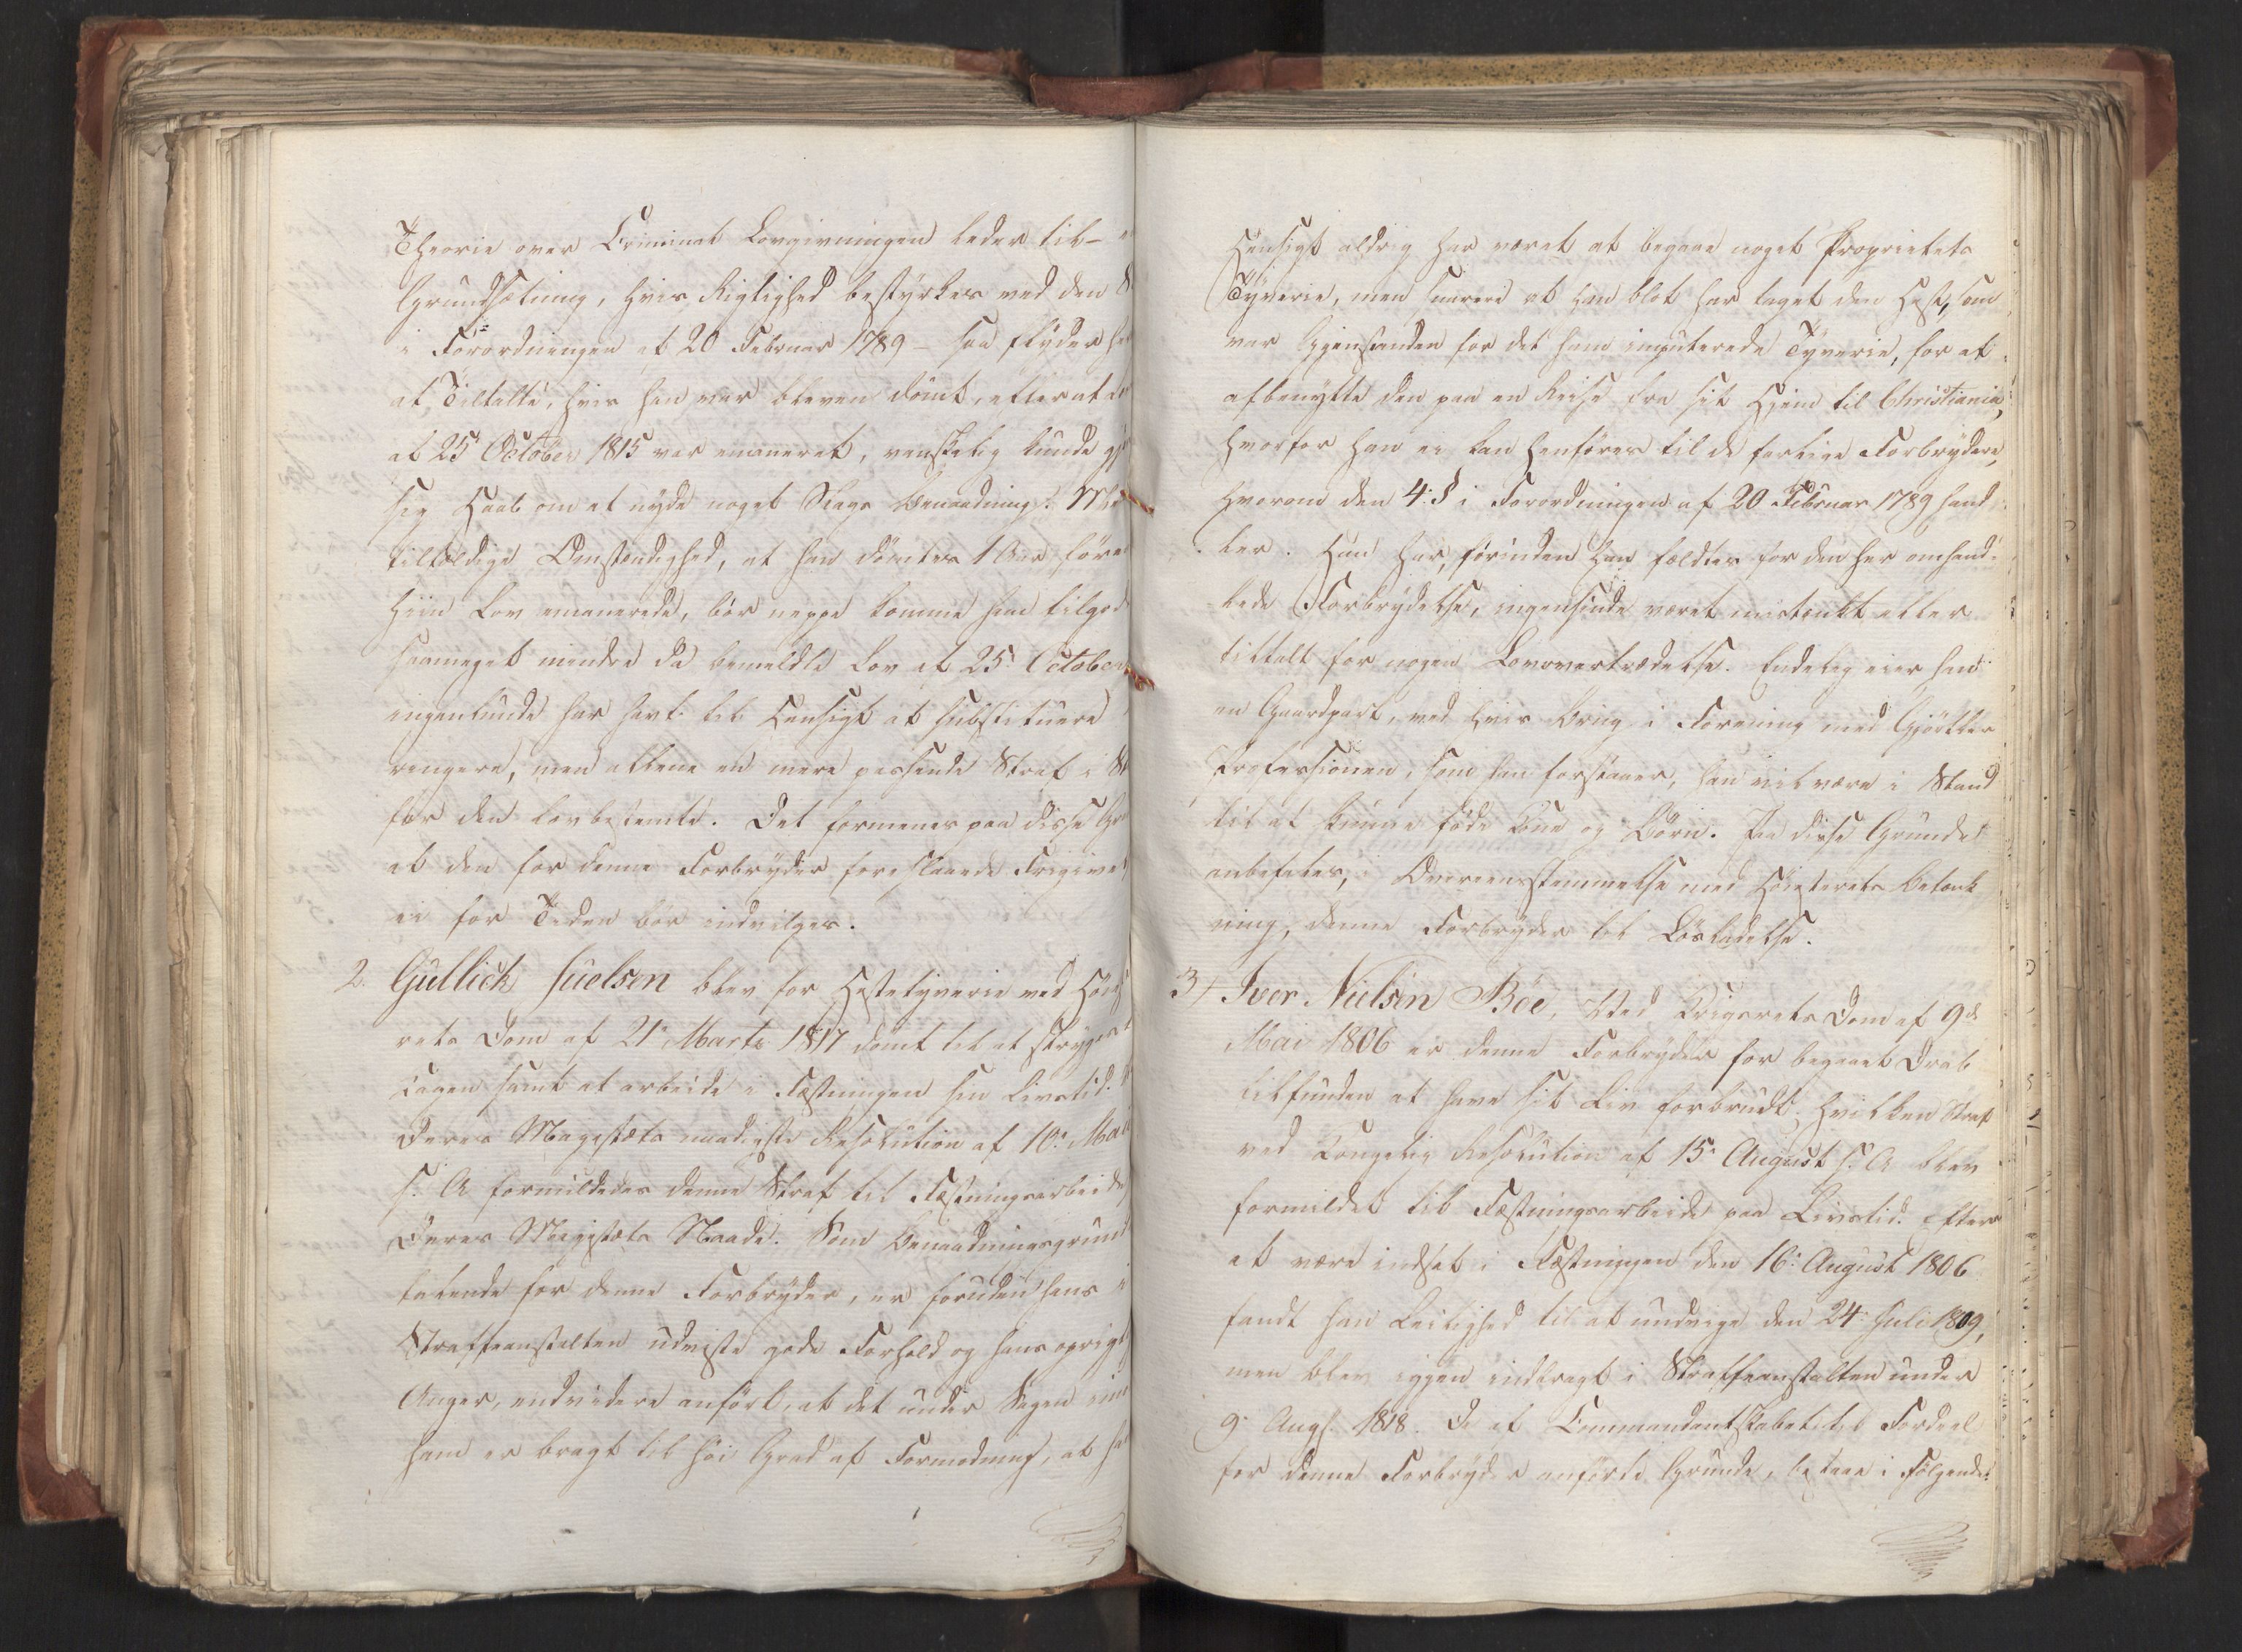 Theorie over Criminal Lovgivningen leder til –
Grundsætning, hvis Rigtighed bestyrkes ved den
i Forordningen af 20 Februar 1789 – saa flyder
at Tiltalte, hvis han var bleven dömt, efterat
af 25 October 1815 var emaneret, vanskelig kunde
sig Haab om at nyde noget Slags Benaadning.
tilfældige Omstændighed, at han dömtes 1 Aar för
hiin Lov emanerede, bör neppe komme ham tilgode
saameget mindre da bemeldte Lov af 25 October
ingenlunde har havt til Hensigt at substituere
ringere, men allene en mere passende Straf i
for den lovbestemte. Det formenes paa disse
at den for denne Forbryder foreslaaede Frigivelse
ei for Tiden bör indvilges.
2. Gullick Juelsen blev for Hestetyverie ved Höieste
rets Dom af 21 Marts 1817 dömt til at stryges til
Kagen samt at arbeide i Fæstningen sin Livstid.
Deres Majestæts naadigste Resolution af 10 Mai
s. A formildedes denne Straf til Fæstningsarbeide
Deres Majestæts Naade. Som Benaadningsgrund
talende for denne Forbryder, er foruden hans i
Straffeanstalten udviste gode Forhold og hans oprigtige
Anger, endvidere anfört, at det under Sagen imod
ham er bragt til höi Grad af Formodning, at hans
Hensigt aldrig har været at begaae noget Proprietets
Tyverie, men snarere at han blot har taget den Hest, som
var Gjenstanden for det ham imputerede Tyverie, for at
afbenytte den paa en Reise fra sit Hjem til Christiania,
hvorfor han ei kan henföres til de farlige Forbrydere,
hvorom den 4. § i Forordningen af 20 Februar 1789 hand
ler. Han har, förinden han fældtes for den her omhand-
lede Forbrydelse, ingensinde været mistænkt eller
tiltalt for nogen Lovovertrædelse. Endelig eier han
en Gaardpart, ved hvis Brug i Forening med Gjörtler
Professionen, som han forstaaer, han vil være i Stand
til at kunne föde Kone og Börn. Paa disse Grunde
anbefales, i Overeensstemmelse med Höiesterets Betænk
ning, denne Forbryder til Lösladelse.
3) Iver Nielsen Böe, Ved Krigsrets Dom af 9de
Mai 1806 er denne Forbryder for begaaet Drab
tilfunden at have sit Liv forbrudt, hvilken Straf
ved Kongelig Resolution af 15 August s. A blev
formildet til Fæstningsarbeide paa Livstid. Efter
at være indsat i Fæstningen den 16 August 1806
fandt han Leilighed til at undvige den 24 Juli 1809,
men blev igjen indbragt i Straffeanstalten under
9 Augs. 1818. De af Commandantskabet til Fordeel
for denne Forbryder anförte Grunde, bestaae i Fölgende: